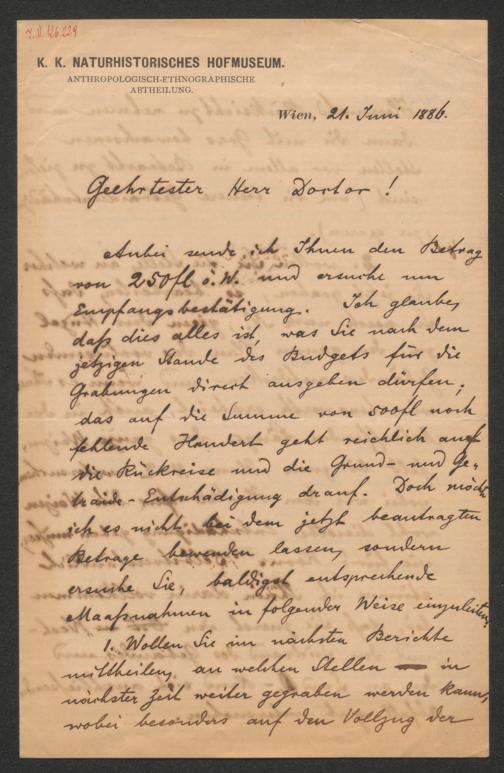 J.N. 126.229
K. K. NATURHISTORISCHES HOFMUSEUM.
ANTHROPOLOGISCH-ETHNOGRAPHISCHE
ABTHEILUNG.
Wien, 21. Juni 1886.
Geehrtester Herr Doctor!
Anbei sende ich Ihnen den Betrag
von 250fl ö. W. und ersuche um
Empfangsbestätigung. Ich glaube,
daß dies alles ist, was Sie nach dem
jetzigen Stande des Budgets für die
Grabungen direct ausgeben dürfen;
das auf die Summe von 500fl noch
fehlende Hundert geht reichlich auf
die Rückreise und die Grund- und Ge-
traide-Entschädigung drauf. Doch möcht
ich es nicht bei dem jetzt beantragten
Betrage bewenden lassen, sondern
ersuche Sie, baldigst entsprechende
Maaßnahmen in folgender Weise einzuleiten:
1. Wollen Sie im nächsten Berichte
mittheilen, an welchen Stellen in
nächster Zeit weiter gegraben werden kann,
wobei besonders auf den Vollzug der